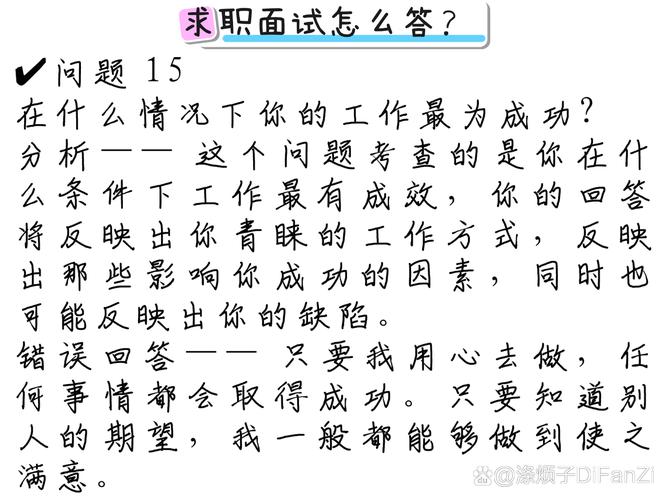 求职面试怎么答?
✔问题 15
在什么情况下你的工作最为成功?
分析—— 这个问题考查的是你在什
么条件下工作最有成效, 你的回答
将反映出你青睐的工作方式, 反映
出那些影响你成功的因素, 同时也
可能反映出你的缺陷。
错误回答—— 只要我用心去做, 任
何事情都会取得成功。只要知道别
人的期望, 我一般都能够做到使之
满意。
@涤烦子DiFanZi